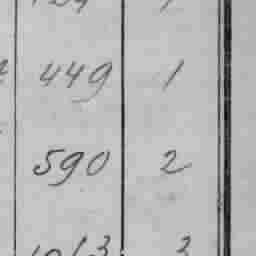 449 1
590 2
1013 3